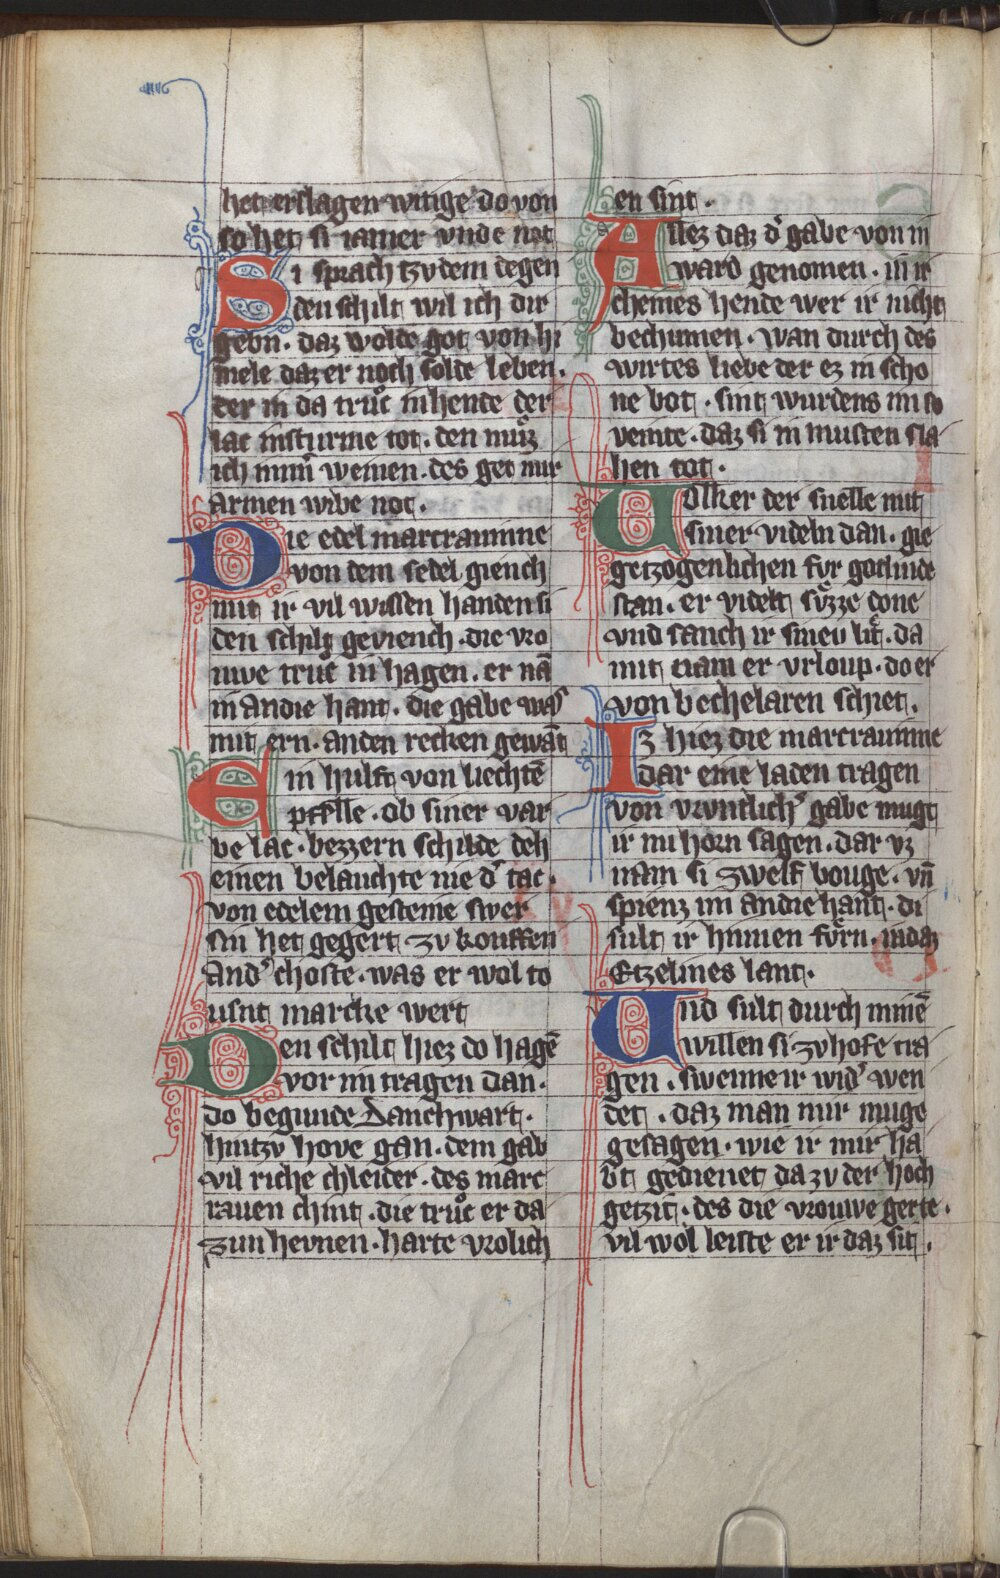 het erslagen witige do von
so het si iamer vnde not
Si sprach tzv dem degen
den schilt wil ich dir
gebn. daz wolde got von hi
mele daz er noch solde leben.
der in da trůc in hende der
lac in sturme tot. den mvͤz
ich nimͥ weinen. des get mir
armen wibe not.
Die edel marcrauinne
von dem sedel giench
mit ir vil wissen handen si
den schilt geviench. die vro
uwe truc in hagen. er nā
in an die hant. die gabe was
mit ern. an den recken gewāt
Ein hulft von liechtē
pfelle. ob siner var
we lac. bezzern schilde deh
einen belauchte nie dͤ tac.
von edelem gesteine swer
sin het gegert zv kouffen
Andͤ choste. was er wol to
usnt marcke wert
Den schilt hiez do hagē
vor im tragen dan.
do begunde Danchwart.
hintzv hove gan. dem gab
vil riche chleider. des marc
rauen chint. die trůc er da
zun hevnen. harte vrolich
en sint.
Allez daz dͤ gabe von in
ward genomen. in ir
cheines hende wer ir nicht
bechumen. wan durch des
wirtes liebe der ez in scho
ne bot. sint wurdens im so
veinte. daz si in musten sla
hen tot.
Volker der snelle mit
siner videln dan. gie
getzogenlichen fvr gotlinde
stan. er videlt svͤzze done
vnd sanch ir sinev lit. da
mit nam er vrloup. do er
von bechelaren schiet.
Iz hiez die marcrauinne
dar eine laden tragen
von vrvntlichͤ gabe mugt
ir nu horn sagen. dar vz
nam si zwelf bouge. vn̄
spienz im an die hant. di
sult ir hinnen fvͤrn. in daz
Etzelines lant.
Vnd sult durch minē
willen si zv hofe tra
gen. swenne ir widͤ wen
det. daz man mir muge
gesagen. wie ir mir ha
bt gedienet da zv der hoch
getzit. des die vrouwe gerte.
vil wol leiste er ir daz sit.